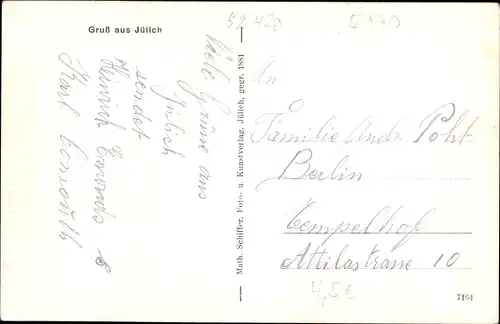 Gruß aus Jülich
52420
Viele Grüße aus
Jülich
sendet
Heinrich
Karl
Math. Schiffer, Foto- u. Kunstverlag, Jülich, gegr. 1881
An
Familie Andr. Poht
Berlin
Tempelhof
Attilastrasse 10
4,5€